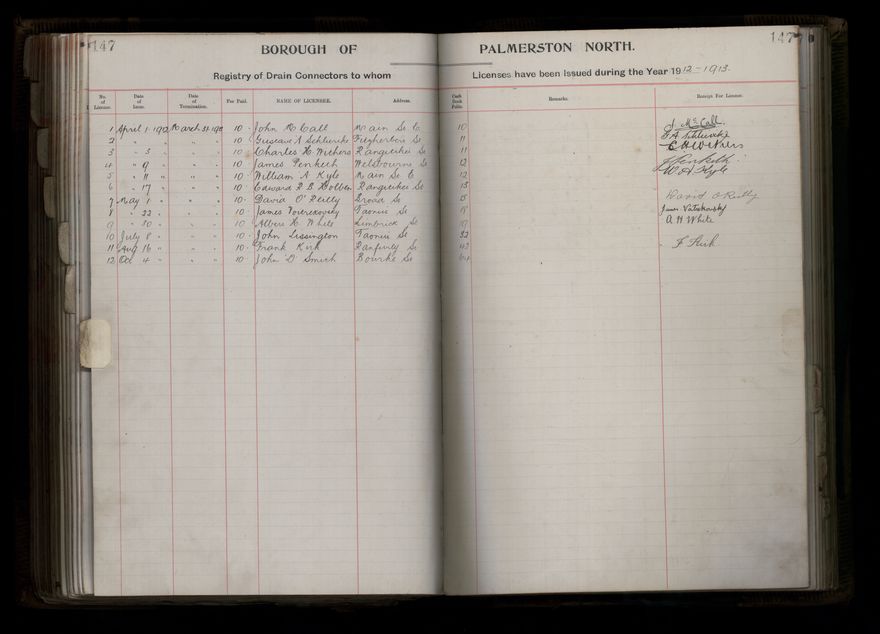 147 147
BOROUGH OF PALMERSTON NORTH.
Registry of Drain Connectors to whom Licenses have been Issued during the Year 1912-1913.
No. of License. Date of Issue. Date of Termination. Fee Paid. NAME OF LICENSEE. Address. Cash Book Folio. Remarks. Receipt For License.
1 April 1 1912 March 31 1913 10 - John McCall Main St E 10 J. McCall.
2 " " " " " 10 Gustave A Schlueske Fitzherbert St 11
3 " 3 " " " 10 - Charles H. Withers Rangitikei St 11 C H Withers
4 " 9 " " " 10 - James Penketh Melbourne St 12 J Penketh
5 " 11 " " " 10 William A Kyle Main St E 12 W A Kyle
6 " 17 " " " 10 - Edward R B Holben Rangitikei St 13
7 May 1 " " " 10 - David O'Reilly Broad St 15 David O'Reilly
8 " 22 " " " 10 - James Taonui St James
9 " 30 " " " 10 Albert H. White Limbrick St A H White
10 July 8 " " " 10 - John Lissington Taonui St 32
11 Aug 16 " " " 10 - Frank Kirk Ranfurly St 42 F Kirk
12 Oct 4 " " " 10 - John D Smith Bourke St 64